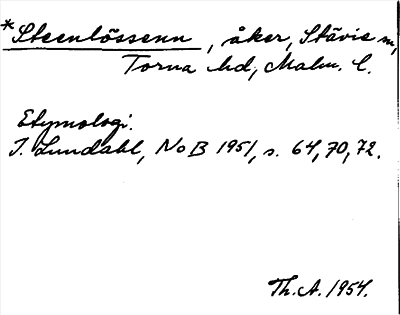 *Steenlössenn, åker, Stävie sn,
Torna hd, Malm. l.
Etymologi.
I. Lundahl, NoB 1951, s. 64, 70, 72.
Th. A. 1954.